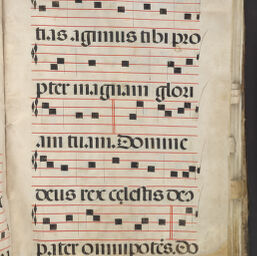 tias agimus tibi pro
pter magnam glori
am tuam. Domine
deus rex celestis deo
pater omnipotēs. Do